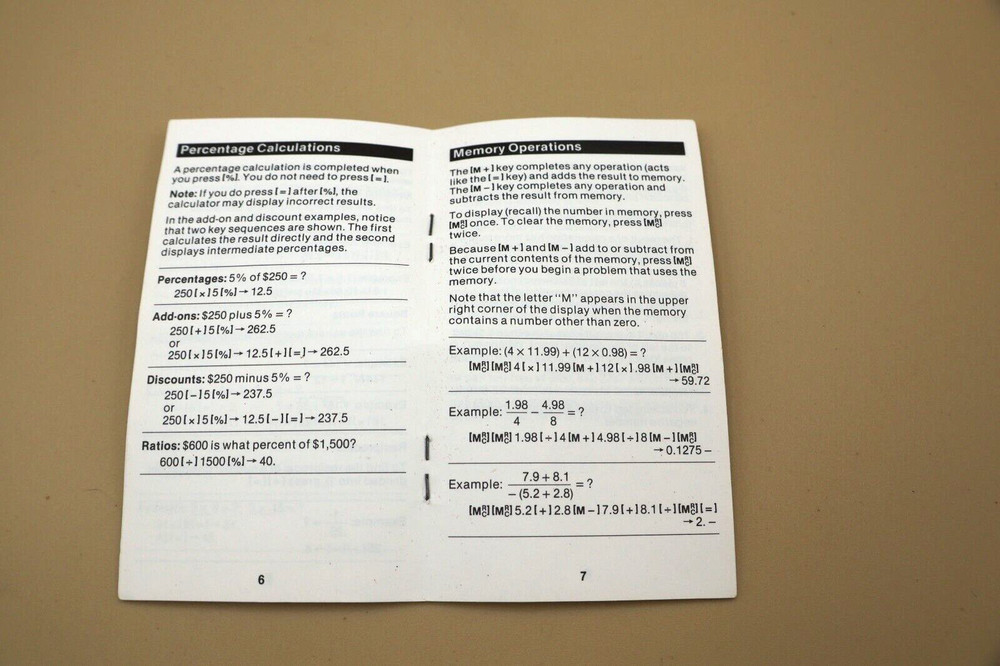 Percentage Calculations
A percentage calculation is completed when
you press [%]. You do not need to press [=].
Note: If you do press [=] after [%], the
calculator may display incorrect results.
In the add-on and discount examples, notice
that two key sequences are shown. The first
calculates the result directly and the second
displays intermediate percentages.
Percentages: 5% of $250 = ?
250 [×] 5 [%] → 12.5
Add-ons: $250 plus 5% = ?
250 [+] 5 [%] → 262.5
or
250 [×] 5 [%] → 12.5 [+] [=] → 262.5
Discounts: $250 minus 5% = ?
250 [−] 5 [%] → 237.5
or
250 [×] 5 [%] → 12.5 [−] [=] → 237.5
Ratios: $600 is what percent of $1,500?
600 [÷] 1500 [%] → 40.
6
Memory Operations
The [M+] key completes any operation (acts
like the [=] key) and adds the result to memory.
The [M−] key completes any operation and
subtracts the result from memory.
To display (recall) the number in memory, press
[MR/C] once. To clear the memory, press [MR/C]
twice.
Because [M+] and [M−] add to or subtract from
the current contents of the memory, press [MR/C]
twice before you begin a problem that uses the
memory.
Note that the letter "M" appears in the upper
right corner of the display when the memory
contains a number other than zero.
Example: (4 × 11.99) + (12 × 0.98) = ?
[MR/C] [MR/C] 4 [×] 11.99 [M+] 12 [×] .98 [M+] [MR/C]
→ 59.72
Example: 1.98/4 − 4.98/8 = ?
[MR/C] [MR/C] 1.98 [÷] 4 [M+] 4.98 [÷] 8 [M−] [MR/C]
→ 0.1275 −
Example: 7.9 + 8.1 / −(5.2 + 2.8) = ?
[MR/C] [MR/C] 5.2 [+] 2.8 [M−] 7.9 [+] 8.1 [÷] [MR/C] [=]
→ 2. −
7